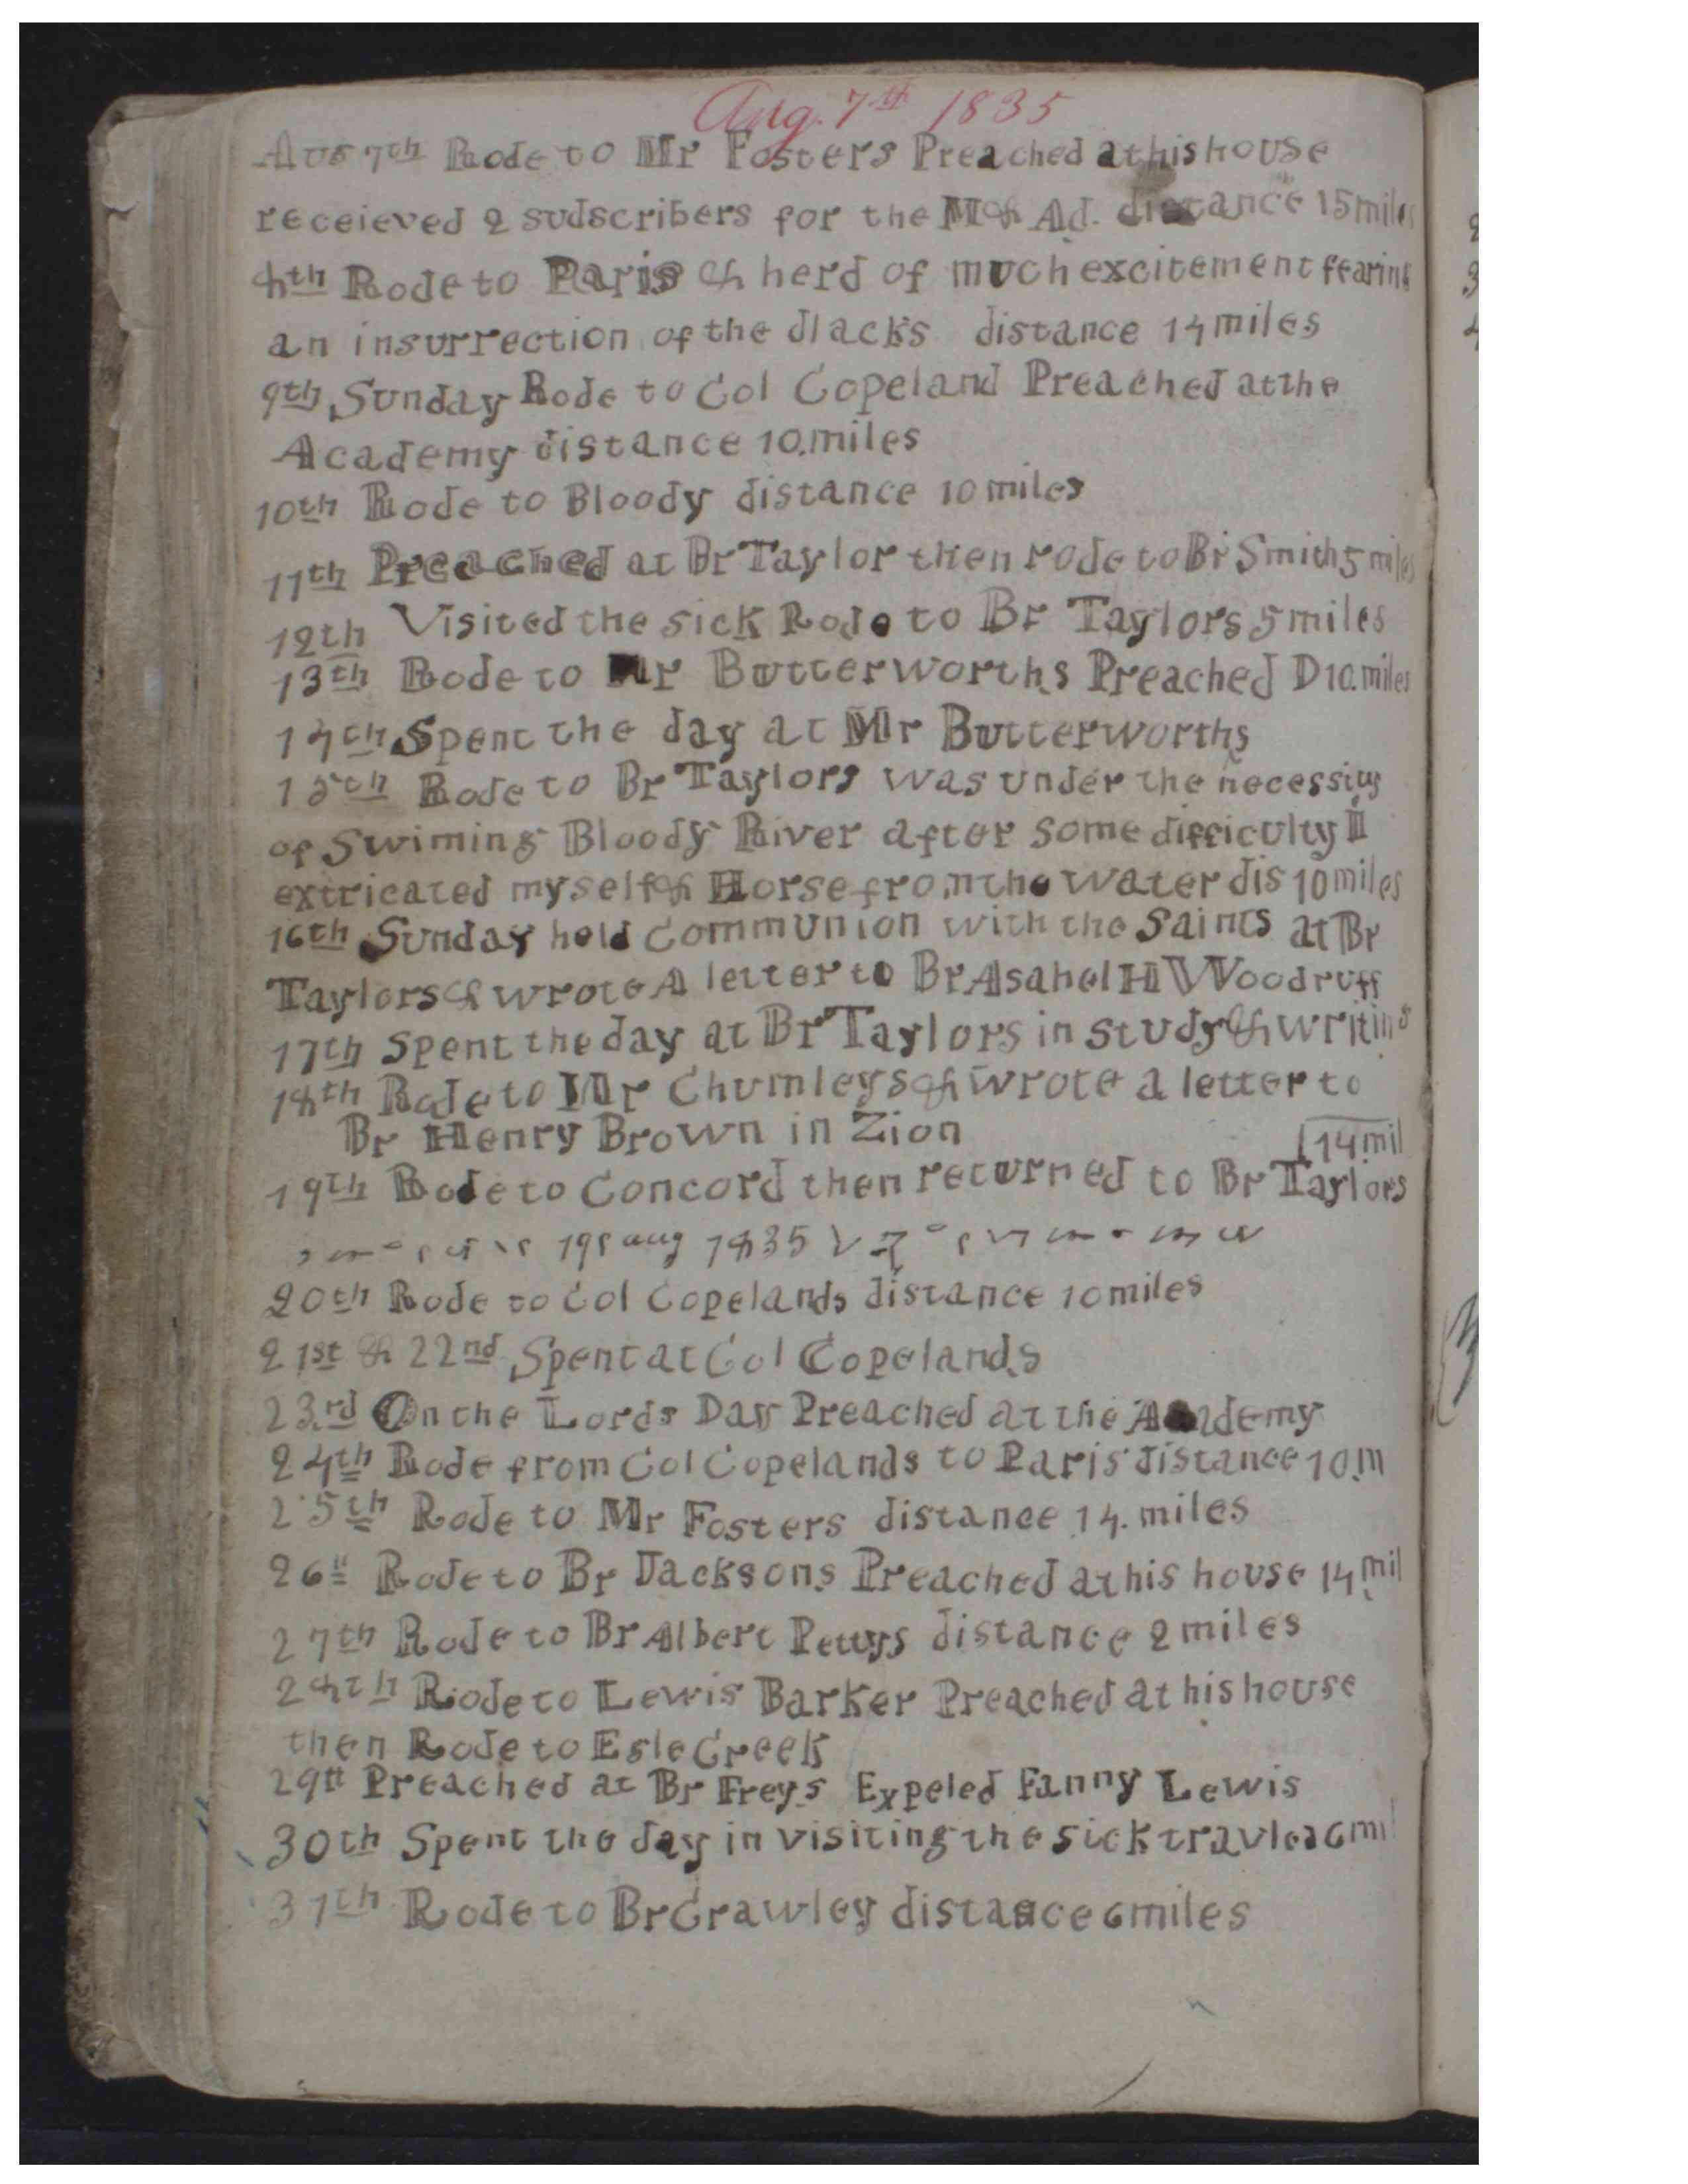 Aug. 7th 1835
Aug 7th Rode to Mr Fosters Preached at his house
receieved 2 sudscribers for the M & Ad. distance 15 miles
8th Rode to Paris & herd of much excitement fearing
an insurrection of the dlacks distance 14 miles
9th Sunday Rode to Col Copeland Preached at the
Academy distance 10 miles
10th Rode to Bloody distance 10 miles
11th Preached at Br Taylor then rode to Br Smith 5 miles
12th Visited the sick Rode to Br Taylors 5 miles
13th Rode to Mr Butterworths Preached D 10 miles
14th Spent the day at Mr Butterworths
15th Rode to Br Taylors was under the necessity
of Swiming Bloody River after some difficulty I
extricated myself & Horse from the water dis 10 miles
16th Sunday held Communion with the Saints at Br
Taylors & wrote A letter to Br Asahel H Woodruff
17th Spent the day at Br Taylors in study & writing
18th Rode to Mr Chumleys & wrote a letter to
Br Henry Brown in Zion
14 mil
19th Rode to Concord then returned to Br Taylors
19 aug 1835
20th Rode to Col Copelands distance 10 miles
21st & 22nd Spent at Col Copelands
23rd On the Lords Day Preached at the Academy
24th Rode from Col Copelands to Paris distance 10 m
25th Rode to Mr Fosters distance 14 miles
26th Rode to Br Jacksons Preached at his house 14 mil
27th Rode to Br Albert Pettys distance 2 miles
28th Rode to Lewis Barker Preached at his house
then Rode to Egle Creek
29th Preached at Br Freys Expeled Fanny Lewis
30th Spent the day in visiting the sick travled 6 mi
31th Rode to Br Crawley distance 6 miles